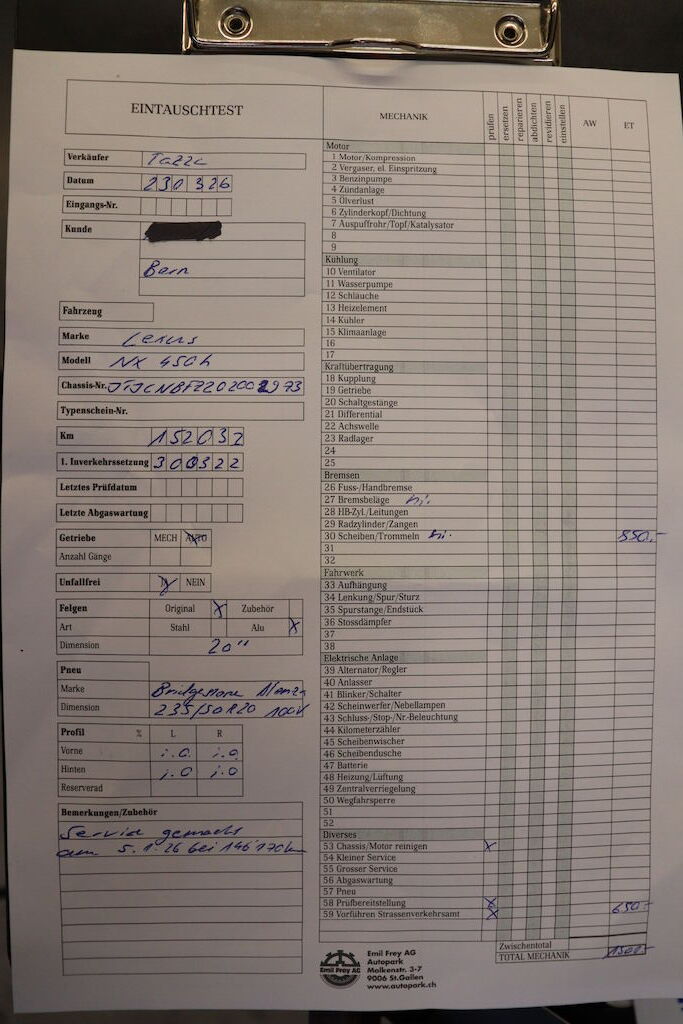 EINTAUSCHTEST
Verkäufer
Datum 230326
Eingangs-Nr.
Kunde
Bern
Fahrzeug
Marke Lexus
Modell NX 450h
Chassis-Nr.
Typenschein-Nr.
Km 152032
1. Inverkehrssetzung 300322
Letztes Prüfdatum
Letzte Abgaswartung
Getriebe MECH AUTO X
Anzahl Gänge
Unfallfrei JA X NEIN
Felgen Original X Zubehör
Art Stahl Alu X
Dimension 20"
Pneu
Marke Bridgestone Alenza
Dimension 235/50R20 100V
Profil % L R
Vorne i.O. i.O.
Hinten i.O i.O
Reserverad
Bemerkungen/Zubehör
Service gemacht
am 5.1.26 bei 146'170km
MECHANIK prüfen ersetzen reparieren abdichten revidieren einstellen AW ET
Motor
1 Motor/Kompression
2 Vergaser, el. Einspritzung
3 Benzinpumpe
4 Zündanlage
5 Ölverlust
6 Zylinderkopf/Dichtung
7 Auspuffrohr/Topf/Katalysator
8
9
Kühlung
10 Ventilator
11 Wasserpumpe
12 Schläuche
13 Heizelement
14 Kühler
15 Klimaanlage
16
17
Kraftübertragung
18 Kupplung
19 Getriebe
20 Schaltgestänge
21 Differential
22 Achswelle
23 Radlager
24
25
Bremsen
26 Fuss-/Handbremse
27 Bremsbeläge hi.
28 HB-Zyl./Leitungen
29 Radzylinder/Zangen
30 Scheiben/Trommeln hi. 850.-
31
32
Fahrwerk
33 Aufhängung
34 Lenkung/Spur/Sturz
35 Spurstange/Endstück
36 Stossdämpfer
37
38
Elektrische Anlage
39 Alternator/Regler
40 Anlasser
41 Blinker/Schalter
42 Scheinwerfer/Nebellampen
43 Schluss-/Stop-/Nr.-Beleuchtung
44 Kilometerzähler
45 Scheibenwischer
46 Scheibendusche
47 Batterie
48 Heizung/Lüftung
49 Zentralverriegelung
50 Wegfahrsperre
51
52
Diverses
53 Chassis/Motor reinigen X
54 Kleiner Service
55 Grosser Service
56 Abgaswartung
57 Pneu
58 Prüfbereitstellung X
59 Vorführen Strassenverkehrsamt X 650.-
Zwischentotal
TOTAL MECHANIK 1500.-
Emil Frey AG
Emil Frey AG
Autopark
Molkenstr. 3-7
9006 St.Gallen
www.autopark.ch